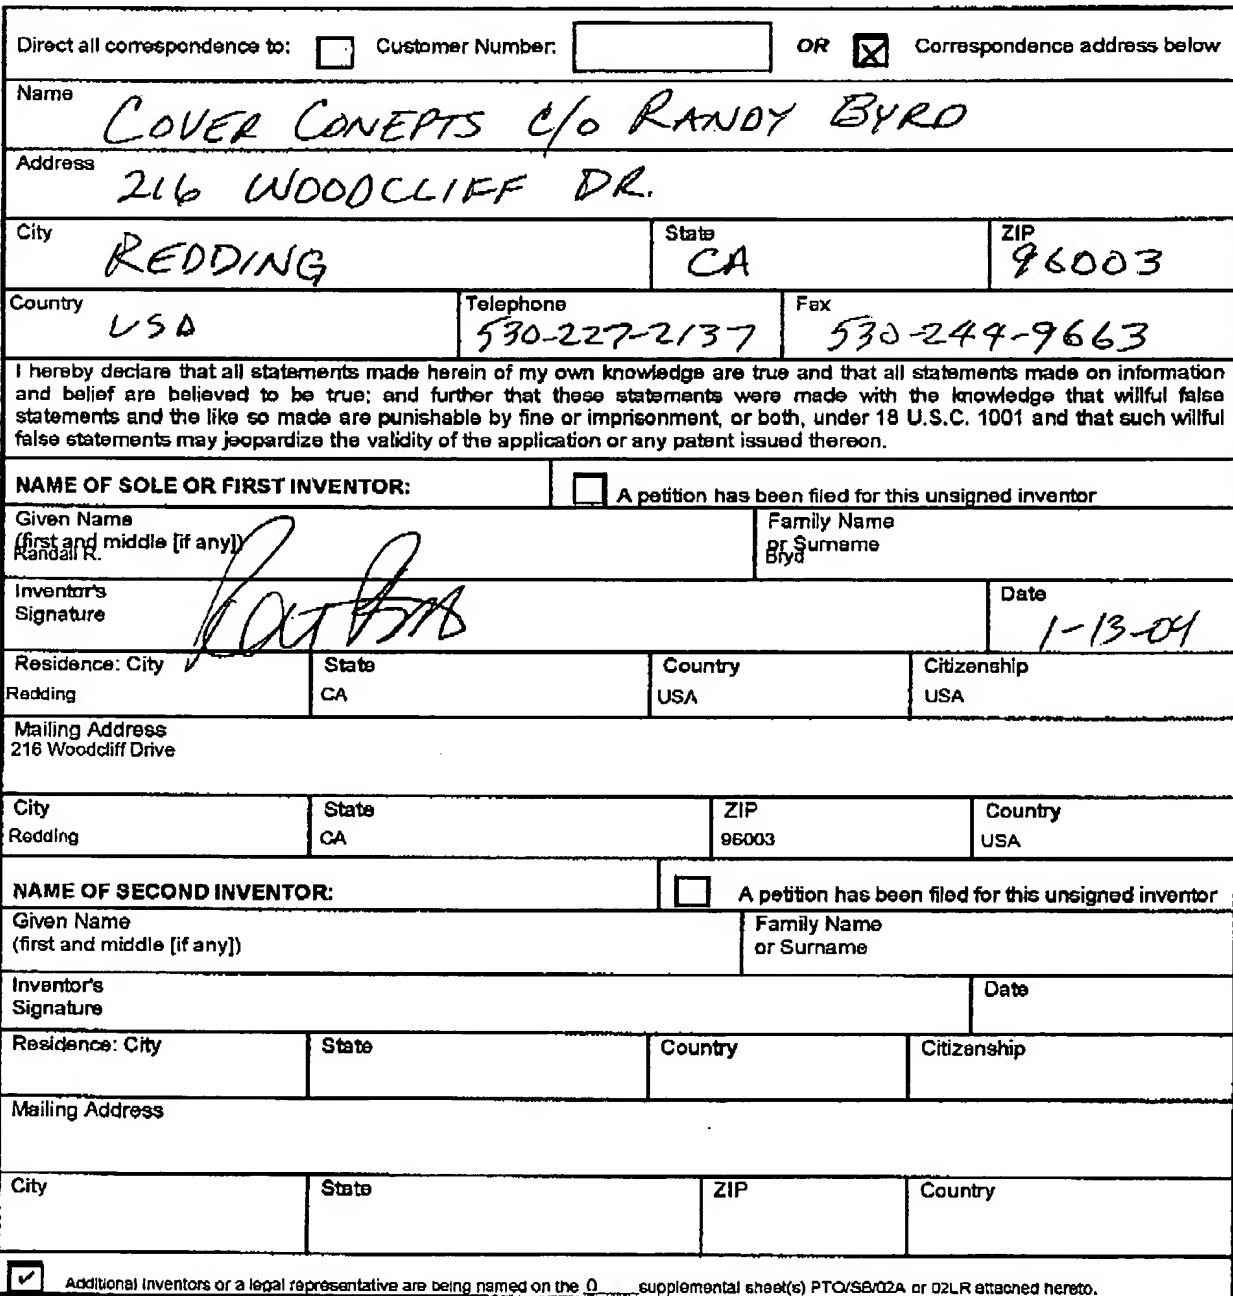 Direct all correspondence to: Customer Number: OR Correspondence address below
Name COVER CONEPTS C/O RANDY BYRD
Address 216 WOODCLIFF DR.
City REDDING State CA ZIP 96003
Country USA Telephone 530-227-2137 Fax 530-244-9663
I hereby declare that all statements made herein of my own knowledge are true and that all statements made on information
and belief are believed to be true; and further that these statements were made with the knowledge that willful false
statements and the like so made are punishable by fine or imprisonment, or both, under 18 U.S.C. 1001 and that such willful
false statements may jeopardize the validity of the application or any patent issued thereon.
NAME OF SOLE OR FIRST INVENTOR: A petition has been filed for this unsigned inventor
Given Name Family Name
(first and middle [if any]) or Surname
Randall R. Bryd
Inventor's Date
Signature 1-13-04
Residence: City State Country Citizenship
Redding CA USA USA
Mailing Address
216 Woodcliff Drive
City State ZIP Country
Redding CA 96003 USA
NAME OF SECOND INVENTOR: A petition has been filed for this unsigned inventor
Given Name Family Name
(first and middle [if any]) or Surname
Inventor's Date
Signature
Residence: City State Country Citizenship
Mailing Address
City State ZIP Country
Additional inventors or a legal representative are being named on the 0 supplemental sheet(s) PTO/SB/02A or 02LR attached hereto.